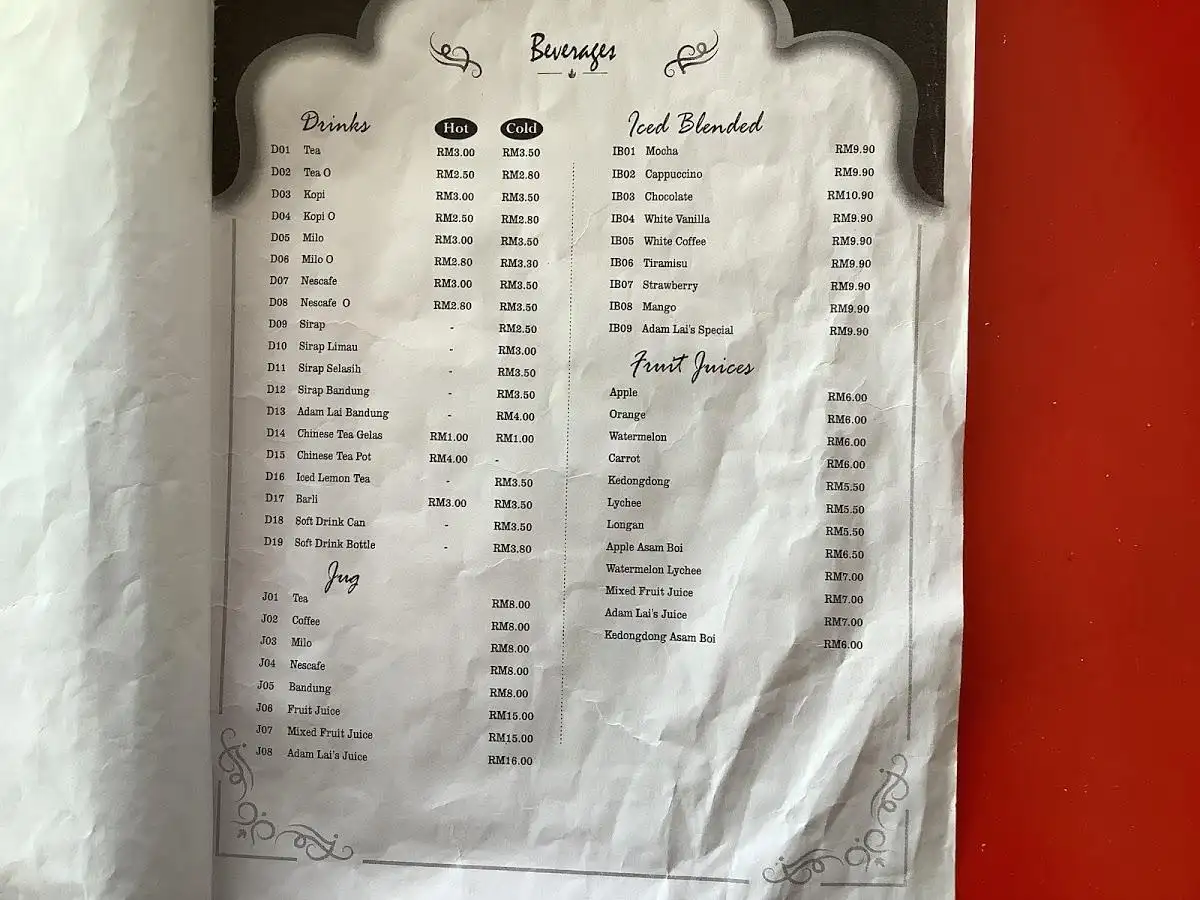 Beverages
Drinks Hot Cold
D01 Tea RM3.00 RM3.50
D02 Tea O RM2.50 RM2.80
D03 Kopi RM3.00 RM3.50
D04 Kopi O RM2.50 RM2.80
D05 Milo RM3.00 RM3.50
D06 Milo O RM2.80 RM3.30
D07 Nescafe RM3.00 RM3.50
D08 Nescafe O RM2.80 RM3.50
D09 Sirap - RM2.50
D10 Sirap Limau - RM3.00
D11 Sirap Selasih - RM3.50
D12 Sirap Bandung - RM3.50
D13 Adam Lai Bandung - RM4.00
D14 Chinese Tea Gelas RM1.00 RM1.00
D15 Chinese Tea Pot RM4.00 -
D16 Iced Lemon Tea - RM3.50
D17 Barli RM3.00 RM3.50
D18 Soft Drink Can - RM3.50
D19 Soft Drink Bottle - RM3.80
Jug
J01 Tea RM8.00
J02 Coffee RM8.00
J03 Milo RM8.00
J04 Nescafe RM8.00
J05 Bandung RM8.00
J06 Fruit Juice RM15.00
J07 Mixed Fruit Juice RM15.00
J08 Adam Lai's Juice RM16.00
Iced Blended
IB01 Mocha RM9.90
IB02 Cappuccino RM9.90
IB03 Chocolate RM10.90
IB04 White Vanilla RM9.90
IB05 White Coffee RM9.90
IB06 Tiramisu RM9.90
IB07 Strawberry RM9.90
IB08 Mango RM9.90
IB09 Adam Lai's Special RM9.90
Fruit Juices
Apple RM6.00
Orange RM6.00
Watermelon RM6.00
Carrot RM6.00
Kedongdong RM5.50
Lychee RM5.50
Longan RM5.50
Apple Asam Boi RM6.50
Watermelon Lychee RM7.00
Mixed Fruit Juice RM7.00
Adam Lai's Juice RM7.00
Kedongdong Asam Boi RM6.00